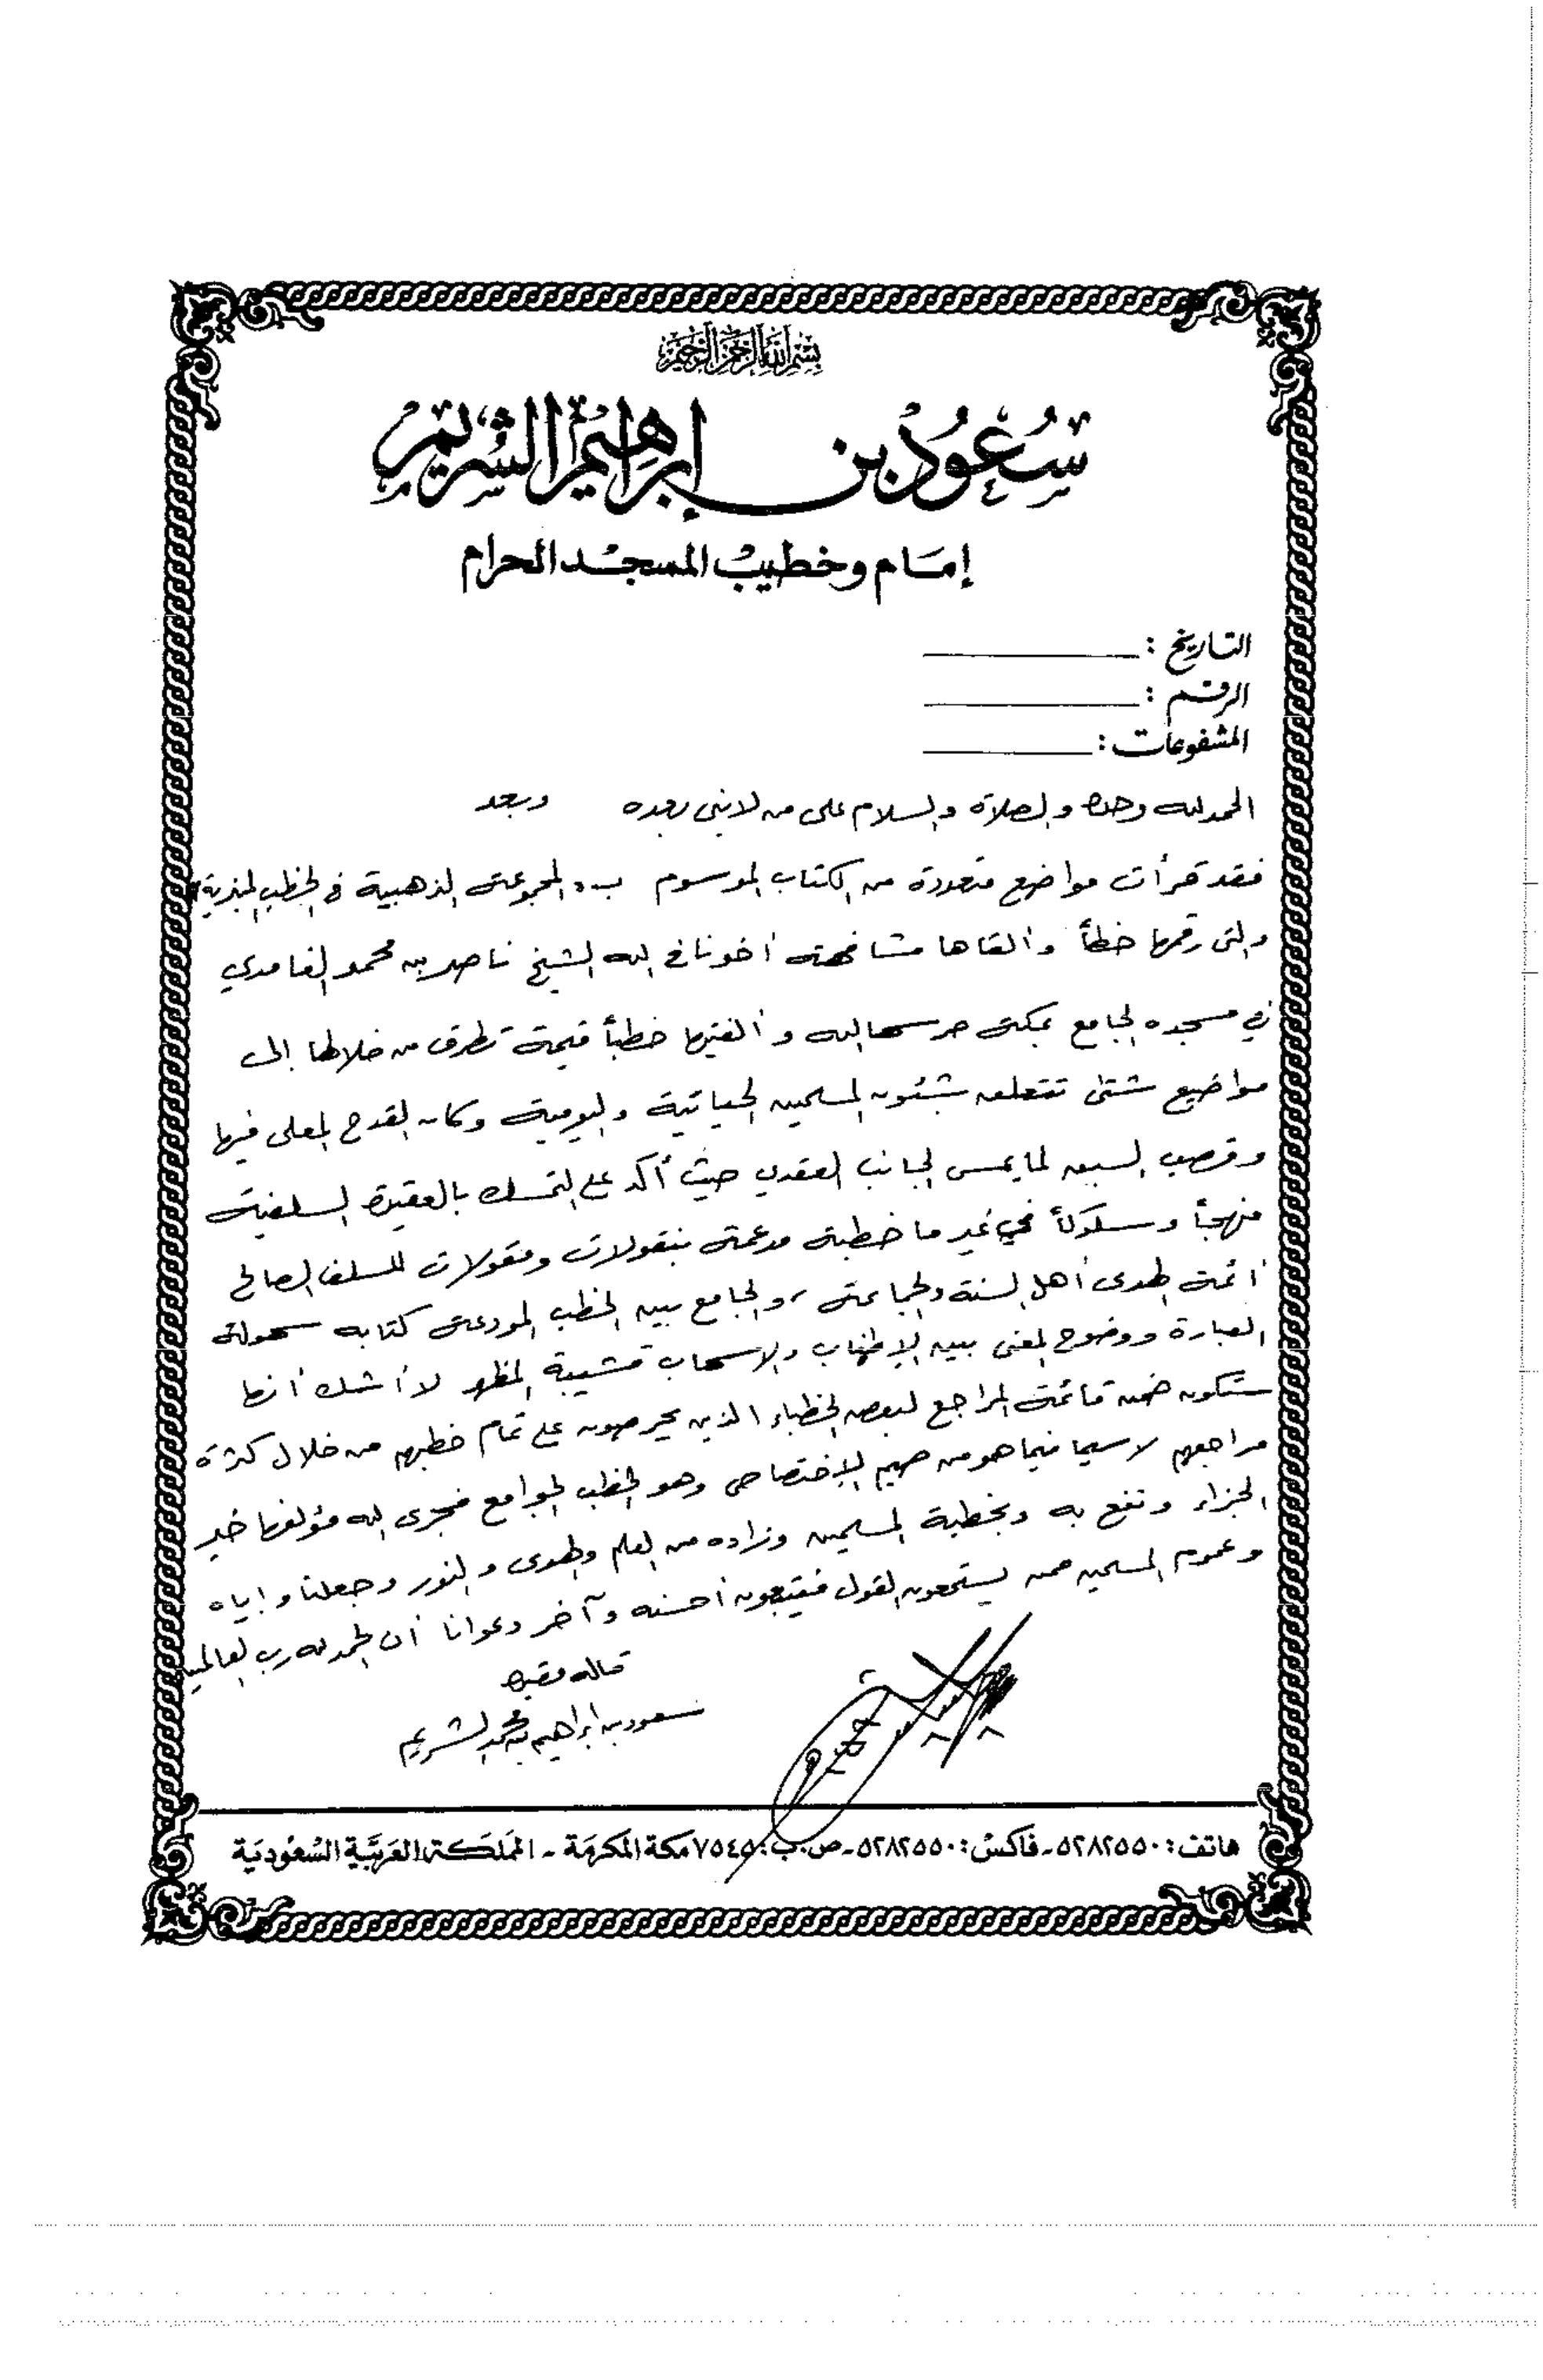 بسم الله الرحمن الرحيم
سعود بن إبراهيم الشريم
إمام وخطيب المسجد الحرام
التاريخ :
الرقم :
المشفوعات :
الحمد لله وحده والصلاة والسلام على من لا نبي بعده وبعد
فقد قرأت مواضع متعددة من الكتاب الموسوم بـ « المجموعة الذهبية في الخطب المنبرية »
والتي رقمها خطأ وألقاها مشافهة أخونا في الله الشيخ ناصر بن محمد الغامدي
في مسجده الجامع بمكة حرسها الله وألفيتها خطباً قيمة تطرق من خلالها إلى
مواضيع شتى تتعلق بشئون المسلمين الحياتية واليومية وكان القدح المعلى فيها
وقصب السبق لما يمس الجانب العقدي حيث أكد على التمسك بالعقيدة السلفية
منهجاً وسلوكاً في غير ما خطبة مدعمة بنقولات ومقولات للسلف الصالح
أئمة الهدى أهل السنة والجماعة ، والجامع بين الخطب المودعة كتابه سهولة
العبارة ووضوح المعنى بين الإطناب والاسهاب قشيبة المظهر لا أشك أنها
ستكون ضمن قائمة المراجع لبعض الخطباء الذين يحرصون على تمام خطبهم من خلال كثرة
مراجعهم لاسيما فيما هو من صميم الإختصاص وهو الخطب الجوامع فجزى الله مؤلفها خير
الجزاء ونفع به وبخطبه المسلمين وزاده من العلم والهدى والنور وجعلنا وإياه
وعموم المسلمين ممن يستمعون القول فيتبعون أحسنه وآخر دعوانا أن الحمد لله رب العالمين
قاله مقيده
سعود بن إبراهيم بن محمد الشريم
هاتف : ٥٢٨٢٥٥٠ - فاكس : ٥٢٨٢٥٥٠ - ص.ب : ٧٥٤٥ مكة المكرمة - المملكة العربية السعودية